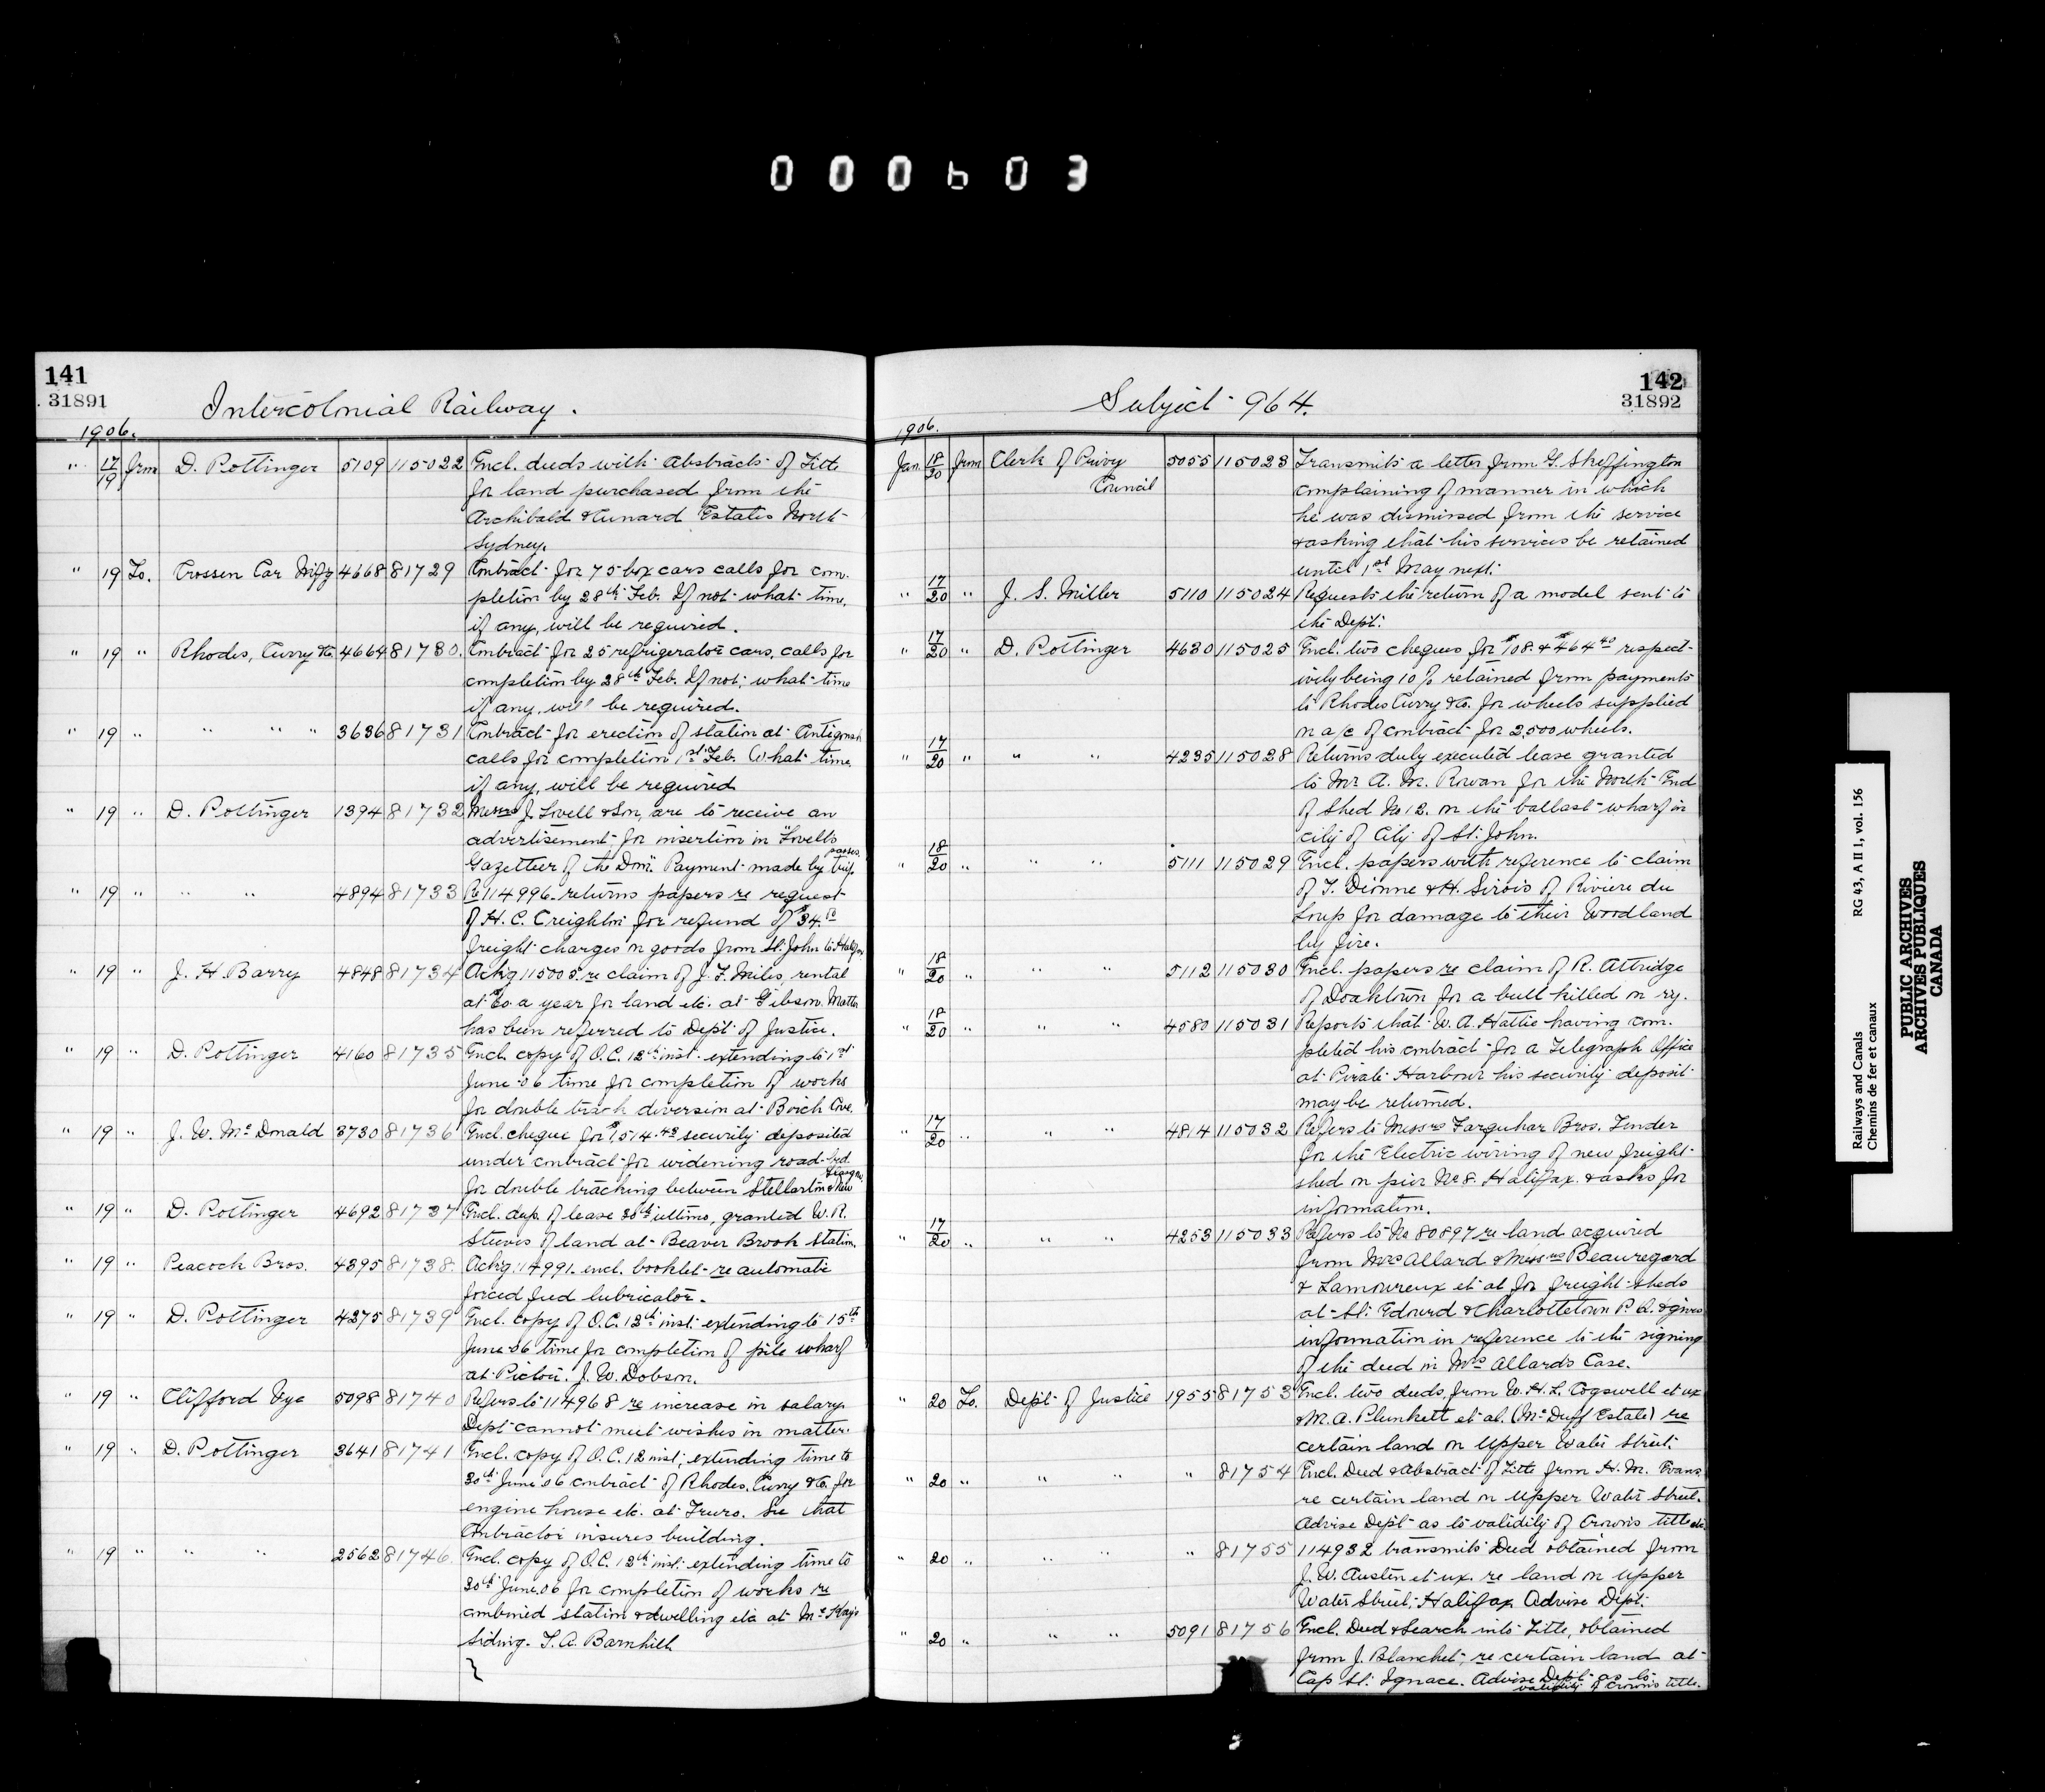 000603
141
31891
Intercolonial Railway.
1906.
" 17/19 from D. Pottinger 5109 115022 Encl. deeds with Abstracts of Title
for land purchased from the
Archibald & Cunard Estates North
Sydney.
" 19 To. Crossen Car Mnfg 4668 81729 Contract for 75 box cars calls for com-
pletion by 28th Feb. If not what time,
if any, will be required.
" 19 " Rhodes, Curry & Co. 4664 81730. Contract for 25 refrigerator cars, calls for
completion by 28th Feb. If not, what time
if any, will be required.
" 19 " " " " 3636 81731 Contract for erection of station at Antigonish
calls for completion 1st Feb. What time,
if any, will be required
" 19 " D. Pottinger 1394 81732 Messrs J. Lovell & Son, are to receive an
advertisement for insertion in "Lovells
Gazetteer of the Domn. Payment made by trip passes.
" 19 " " " 4894 81733 Re 114996 returns papers re request
of H. C. Creighton for refund of $34.
freight charges on goods from St. John to Halifax
" 19 " J. H. Barry 4848 81734 Ackg 115005 re claim of J. F. Miles, rental
at $60. a year for land etc. at Gibson. Matter
has been referred to Dept. of Justice.
" 19 " D. Pottinger 4160 81735 Encl. copy of O.C. 12th inst. extending to 1st
June 06 time for completion of works
for double track diversion at Birch Cove.
" 19 " J. W. McDonald 3730 81736 Encl. cheque for $1514.48 security deposited
under contract for widening road-bed
for double tracking between Stellarton & New Glasgow.
" 19 " D. Pottinger 4692 81737 Encl. dup. of lease 30th ultimo, granted W. R.
Steeves of land at Beaver Brook Station.
" 19 " Peacock Bros. 4395 81738. Ackg 114991. encl. booklet re automatic
forced feed lubricator.
" 19 " D. Pottinger 4275 81739 Encl. copy of O.C. 12th inst. extending to 15th
June 06 time for completion of pile wharf
at Pictou. J. W. Dobson.
" 19 " Clifford Vye 5098 81740 Refers to 114968 re increase in salary.
Dept cannot meet wishes in matter.
" 19 " D. Pottinger 3641 81741 Encl. copy of O.C. 12 inst; extending time to
30th June 06 contract of Rhodes, Curry & Co. for
engine house etc. at Truro. See that
Contractor insures building.
" 19 " " " 2562 81746. Encl. copy of O.C. 12th inst. extending time to
30th June 06 for completion of works re
combined station & dwelling etc at McKay's
Siding. T. A. Barnhill
Subject 964.
142
31892
1906.
Jan. 18/20 from Clerk of Privy 5055 115023 Transmits a letter from G. Skeffington
Council complaining of manner in which
he was dismissed from the service
& asking that his services be retained
until 1st May next.
" 17/20 " J. S. Miller 5110 115024 Requests the return of a model sent to
the Dept.
" 17/20 " D. Pottinger 4630 115025 Encl. two cheques for $108. & $464.40 respect-
ively being 10% retained from payments
to Rhodes Curry & Co. for wheels supplied
on a/c of contract for 2,500 wheels.
" 17/20 " " " 4235 115028 Returns duly executed lease granted
to Mr A. M. Rowan for the North End
of Shed No 12. on the ballast wharf in
city of City of St. John.
" 18/20 " " " 5111 115029 Encl. papers with reference to claim
of T. Dionne & H. Sirois of Riviere du
Loup for damage to their Woodland
by fire.
" 18/20 " " " 5112 115030 Encl. papers re claim of R. Attridge
of Doaktown for a bull killed on ry.
" 18/20 " " " 4580 115031 Reports that W. A. Hattie having com-
pleted his contract for a Telegraph Office
at Pirate Harbour his security deposit
may be returned.
" 17/20 " " " 4814 115032 Refers to Messrs Farquhar Bros. Tender
for the Electric wiring of new freight-
shed on pier No 8. Halifax. & asks for
information.
" 17/20 " " " 4253 115033 Refers to No 80897 re land acquired
from Mrs Allard & Messrs Beauregard
& Lamoureux et al for freight-sheds
at St. Edourd & Charlottetown P. Q. & gives
information in reference to the signing
of the deed in Mrs Allard's Case.
" 20 To. Dept of Justice 1955 81753 Encl. two deeds, from W. H. L. Cogswell et ux
& M. A. Plunkett et al. (McDuff Estate) re
certain land on Upper Water Street.
" 20 " " " " 81754 Encl. Deed & Abstract of Title from H. M. Evans
re certain land on Upper Water Street.
Advise Dept as to validity of Crown's title etc.
" 20 " " " " 81755 114932 transmits Deed obtained from
J. W. Austen et ux. re land on Upper
Water Street, Halifax Advise Dept.
" 20 " " " 5091 81756 Encl. Deed & Search into Title, obtained
from J. Blanchet, re certain land at
Cap St. Ignace. Advise Dept as to
validity of Crown's title.
Railways and Canals RG 43, A II 1, vol. 156
Chemins de fer et canaux
PUBLIC ARCHIVES
ARCHIVES PUBLIQUES
CANADA